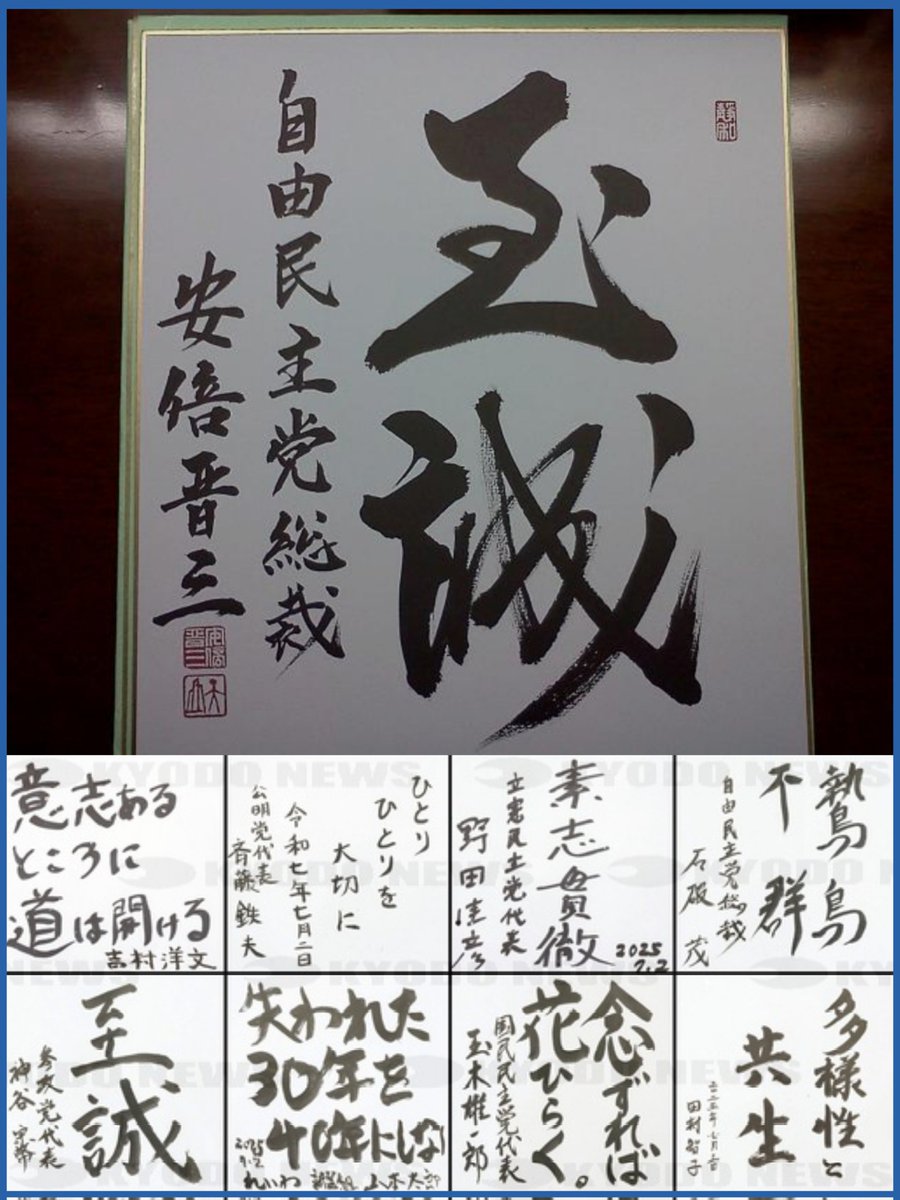 至誠
自由民主党総裁
安倍晋三
意志ある
ところに
道は開ける
吉村洋文
ひとり
ひとりを
大切に
令和七年七月二日
公明党代表
斉藤鉄夫
素志貫徹
2025
7.2
立憲民主党代表
野田佳彦
鷙鳥
不群
自由民主党総裁
石破 茂
至誠
参政党代表
神谷宗幣
失われた
30年を
40年にしな
2025
7.2
れいわ 新選組 山本太郎
念ずれば
花ひらく。
国民民主党代表
玉木雄一郎
多様性と
共生
二〇二五年七月二日
田村智子
KYODO NEWS
KYODO NEWS
KYODO NEWS